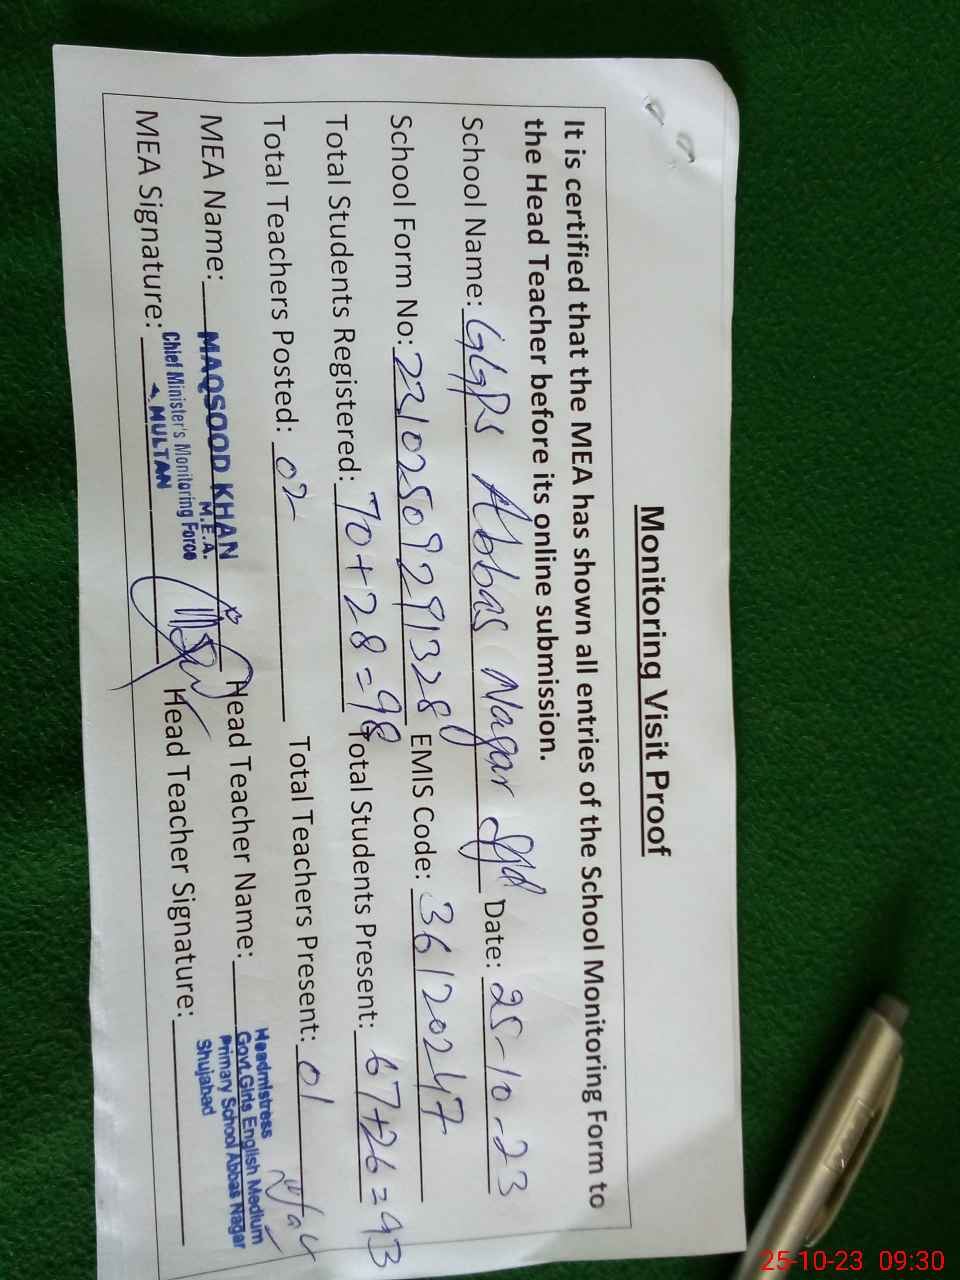 Monitoring Visit Proof
It is certified that the MEA has shown all entries of the School Monitoring Form to
the Head Teacher before its online submission.
School Name: GGPS Abbas Nagar Sjd Date: 25-10-23
School Form No: 22102509291328 EMIS Code: 36120247
Total Students Registered: 70+28=98 Total Students Present: 67+26=93
Total Teachers Posted: 02 Total Teachers Present: 01
MEA Name: MAQSOOD KHAN Head Teacher Name: Headmistress
M.E.A. Govt.Girls English Medium
Chief Minister's Monitoring Force Primary School Abbas Nagar
MULTAN Shujabad
MEA Signature: Head Teacher Signature:
25-10-23 09:30